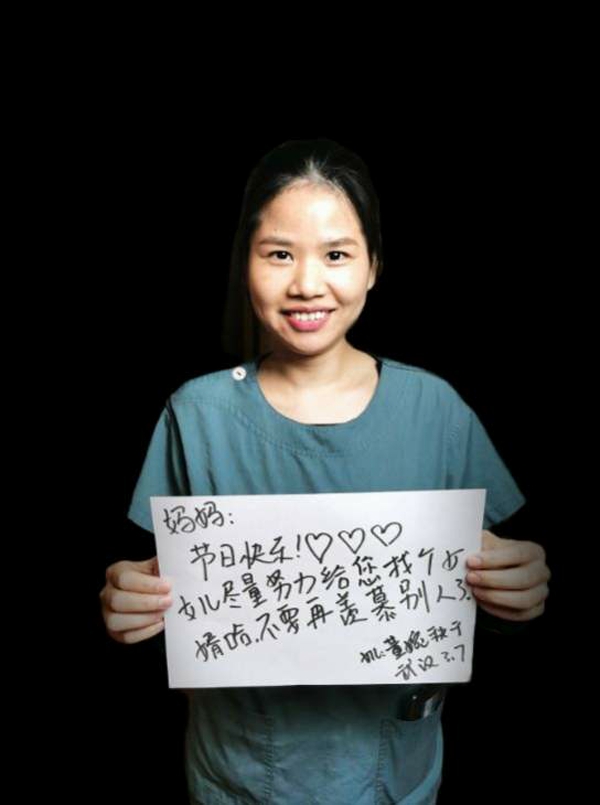 妈妈:
节日快乐!♡♡♡
女儿尽量努力给您找个女
婿哈.不要再羡慕别人了.
女儿:董
武汉 3.7